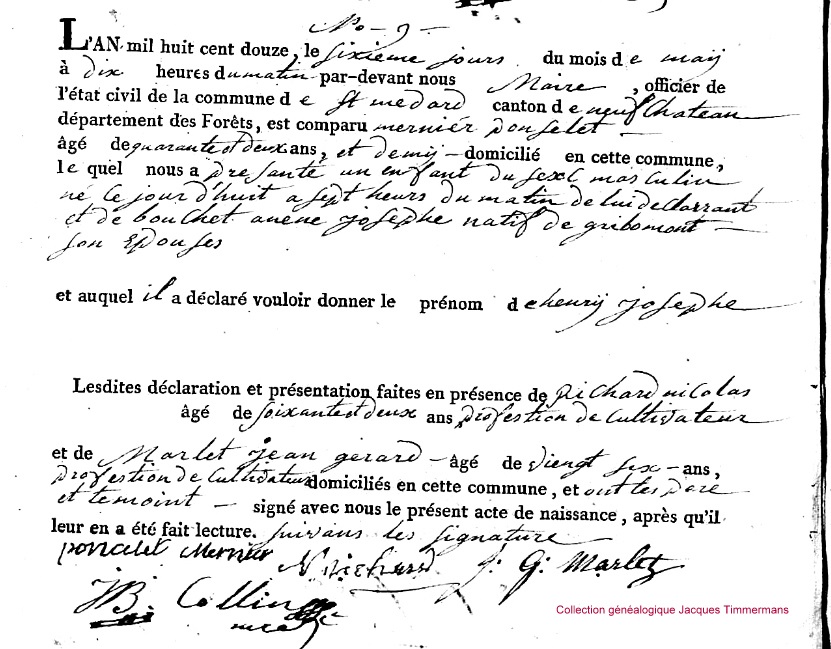 No - 9 -
L'AN mil huit cent douze, le sixieme jours du mois de maij
à dix heures du matin par-devant nous Maire, officier de
l'état civil de la commune de St medard canton de neufchateau
département des Forêts, est comparu mernier ponselet -
âgé de quarante et deux ans, et demij - domicilié en cette commune,
le quel nous a presanté un enfant du sexe masculin
né ce jourd'huit a sept heurs du matin de lui declarrant
et de bouchet anene josephe natif de gribomont -
son Epouses
et auquel il a déclaré vouloir donner le prénom de henrij josephe
Lesdites déclaration et présentation faites en présence de Richard nicolas
âgé de soixante et deux ans profestion de Cultivateur
et de Marlet jean gerard - âgé de viengt six - ans,
profestion de Cultivateur domiciliés en cette commune, et ont les pere
et temoint - signé avec nous le présent acte de naissance, après qu'il
leur en a été fait lecture. suivans les signature
poncelet Mernier N Richard J: G: Marlet
JB: Collin
Collection généalogique Jacques Timmermans